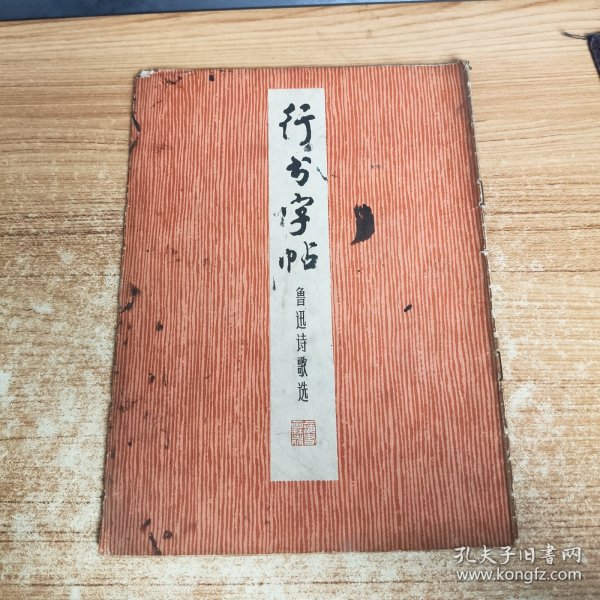 行书字帖
鲁迅诗歌选
孔夫子旧书网
www.kongfz.com